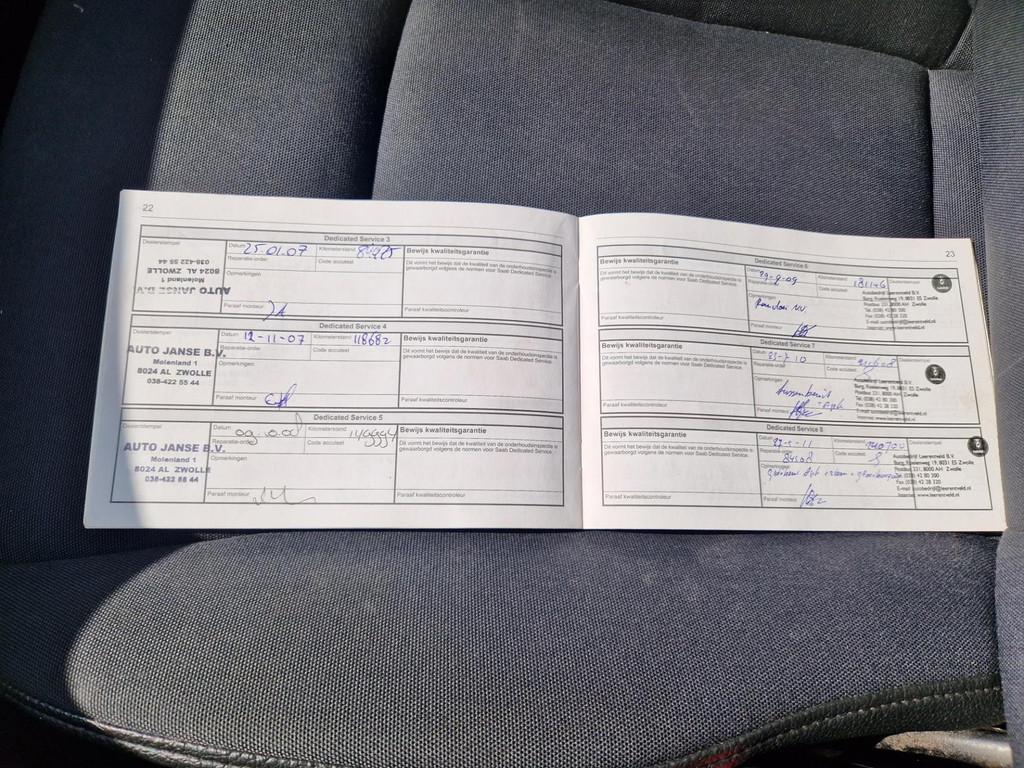 22
Dedicated Service 3
Dealerstempel
AUTO JANSE B.V.
Molenland 1
8024 AL ZWOLLE
038-422 55 44
Datum 25-01-07
Kilometerstand
Reparatie-order:
Code accutest:
Opmerkingen:
Paraaf monteur
Bewijs kwaliteitsgarantie
Dit vormt het bewijs dat de kwaliteit van de onderhoudsinspectie is
gewaarborgd volgens de normen voor Saab Dedicated Service.
Paraaf kwaliteitscontroleur
Dedicated Service 4
Dealerstempel
AUTO JANSE B.V.
Molenland 1
8024 AL ZWOLLE
038-422 55 44
Datum 12-11-07
Kilometerstand 118682
Reparatie-order:
Code accutest:
Opmerkingen:
Paraaf monteur
Bewijs kwaliteitsgarantie
Dit vormt het bewijs dat de kwaliteit van de onderhoudsinspectie is
gewaarborgd volgens de normen voor Saab Dedicated Service.
Paraaf kwaliteitscontroleur
Dedicated Service 5
Dealerstempel
AUTO JANSE B.V.
Molenland 1
8024 AL ZWOLLE
038-422 55 44
Datum
Kilometerstand
Reparatie-order:
Code accutest:
Opmerkingen:
Paraaf monteur
Bewijs kwaliteitsgarantie
Dit vormt het bewijs dat de kwaliteit van de onderhoudsinspectie is
gewaarborgd volgens de normen voor Saab Dedicated Service.
Paraaf kwaliteitscontroleur
23
Dedicated Service 6
Bewijs kwaliteitsgarantie
Dit vormt het bewijs dat de kwaliteit van de onderhoudsinspectie is
gewaarborgd volgens de normen voor Saab Dedicated Service.
Paraaf kwaliteitscontroleur
Datum 29-9-09
Kilometerstand
Dealerstempel
Code accutest:
Paraaf monteur
Autobedrijf Leerentveld B.V.
Burg. Roelenweg 19, 8031 ES Zwolle
Postbus 331, 8000 AH Zwolle
Tel. (038) 42 80 300
Fax (038) 42 28 220
E-mail autobedrijf@leerentveld.nl
Internet: www.leerentveld.nl
Dedicated Service 7
Bewijs kwaliteitsgarantie
Dit vormt het bewijs dat de kwaliteit van de onderhoudsinspectie is
gewaarborgd volgens de normen voor Saab Dedicated Service.
Paraaf kwaliteitscontroleur
Datum
Kilometerstand
Dealerstempel
Reparatie-order:
Code accutest:
Opmerkingen
tussenbeurt
Paraaf monteur
Dedicated Service 8
Bewijs kwaliteitsgarantie
Dit vormt het bewijs dat de kwaliteit van de onderhoudsinspectie is
gewaarborgd volgens de normen voor Saab Dedicated Service.
Paraaf kwaliteitscontroleur
Datum
Kilometerstand
Dealerstempel
Code accutest:
Opmerkingen
Paraaf monteur
Autobedrijf Leerentveld B.V.
Burg. Roelenweg 19, 8031 ES Zwolle
Postbus 331, 8000 AH Zwolle
Tel. (038) 42 80 300
Fax (038) 42 28 220
E-mail: autobedrijf@leerentveld.nl
Internet: www.leerentveld.nl